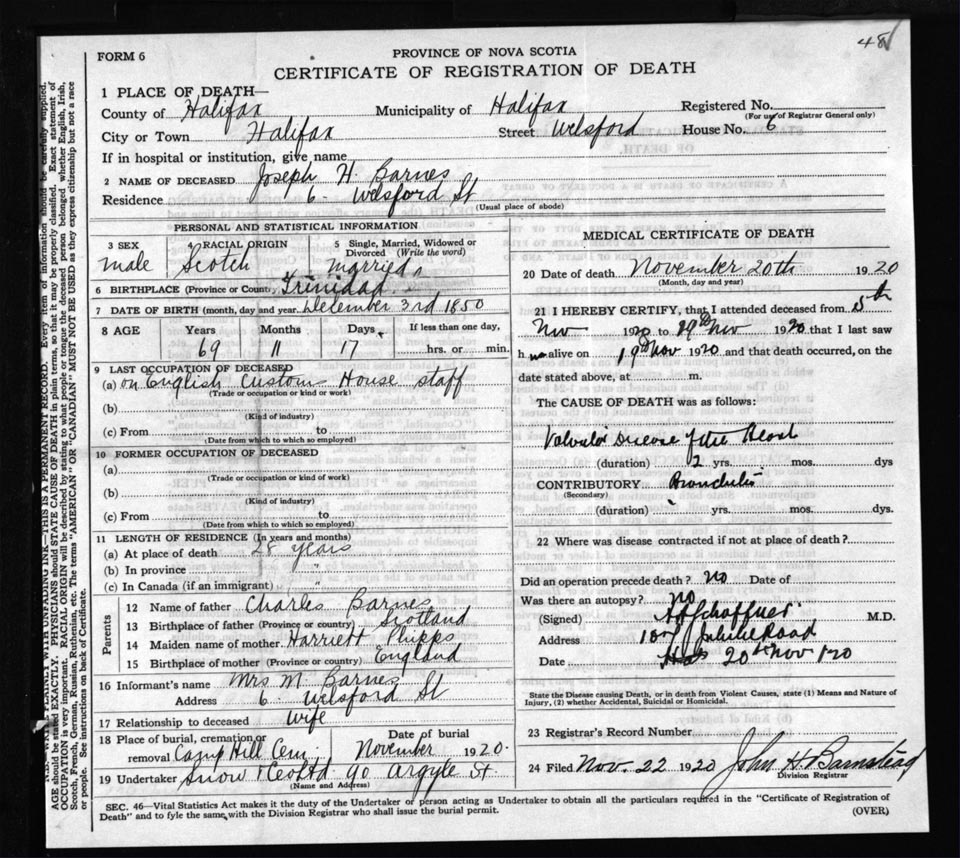 48
FORM 6
PROVINCE OF NOVA SCOTIA
CERTIFICATE OF REGISTRATION OF DEATH
1 PLACE OF DEATH—
County of Halifax Municipality of Halifax Registered No.
(For use of Registrar General only)
City or Town Halifax Street Welsford House No. 6
If in hospital or institution, give name
2 NAME OF DECEASED Joseph H. Barnes
Residence 6 - Welsford St
(Usual place of abode)
PERSONAL AND STATISTICAL INFORMATION
3 SEX male
4 RACIAL ORIGIN Scotch
5 Single, Married, Widowed or Divorced (Write the word) Married
6 BIRTHPLACE (Province or County) Trinidad
7 DATE OF BIRTH (month, day and year) December 3rd 1850
8 AGE Years Months Days If less than one day,
69 11 17 hrs. or min.
9 LAST OCCUPATION OF DECEASED
(a) on English Customs House staff
(Trade or occupation or kind or work)
(b)
(Kind of industry)
(c) From to
(Date from which to which so employed)
10 FORMER OCCUPATION OF DECEASED
(a)
(Trade or occupation or kind or work)
(b)
(Kind of industry)
(c) From to
(Date from which to which so employed)
11 LENGTH OF RESIDENCE (In years and months)
(a) At place of death 28 years
(b) In province "
(c) In Canada (if an immigrant) "
Parents
12 Name of father Charles Barnes
13 Birthplace of father (Province or country) Scotland
14 Maiden name of mother Harriett Phipps
15 Birthplace of mother (Province or country) England
16 Informant's name Mrs M. Barnes
Address 6 Welsford St
17 Relationship to deceased Wife
18 Place of burial, cremation or removal Camp Hill Cem. Date of burial November 1920.
19 Undertaker Snow & Co Ltd 90 Argyle St.
(Name and Address)
MEDICAL CERTIFICATE OF DEATH
20 Date of death November 20th 1920
(Month, day and year)
21 I HEREBY CERTIFY, that I attended deceased from 5th
Nov 1920 to 19th Nov 1920 that I last saw
h im alive on 19th Nov 1920 and that death occurred, on the
date stated above, at m.
The CAUSE OF DEATH was as follows:
Valvular Disease of the Heart
(duration) 2 yrs. mos. dys
CONTRIBUTORY Bronchitis
(Secondary)
(duration) yrs. mos. dys.
22 Where was disease contracted if not at place of death?
Did an operation precede death? No Date of
Was there an autopsy? No
(Signed) M.D.
Address Jubilee Road
Date Hfx 20th Nov 1920
State the Disease causing Death, or in death from Violent Causes, state (1) Means and Nature of
Injury, (2) whether Accidental, Suicidal or Homicidal.
23 Registrar's Record Number
24 Filed Nov. 22 1920 John H. Barnstead
Division Registrar
SEC. 46—Vital Statistics Act makes it the duty of the Undertaker or person acting as Undertaker to obtain all the particulars required in the "Certificate of Registration of
Death" and to fyle the same with the Division Registrar who shall issue the burial permit. (OVER)
N.B.—WRITE PLAINLY WITH UNFADING INK—THIS IS A PERMANENT RECORD. Every item of information should be carefully supplied.
AGE should be stated EXACTLY. PHYSICIANS should STATE CAUSE OF DEATH in plain terms, so that it may be properly classified. Exact statement of
OCCUPATION is very important. RACIAL ORIGIN will be described by stating to what people or tongue the deceased person belonged whether English, Irish,
Scotch, French, German, Russian, Ruthenian, etc. The terms "AMERICAN" OR "CANADIAN" MUST NOT BE USED as they express citizenship but not a race
or people. See instructions on back of Certificate.